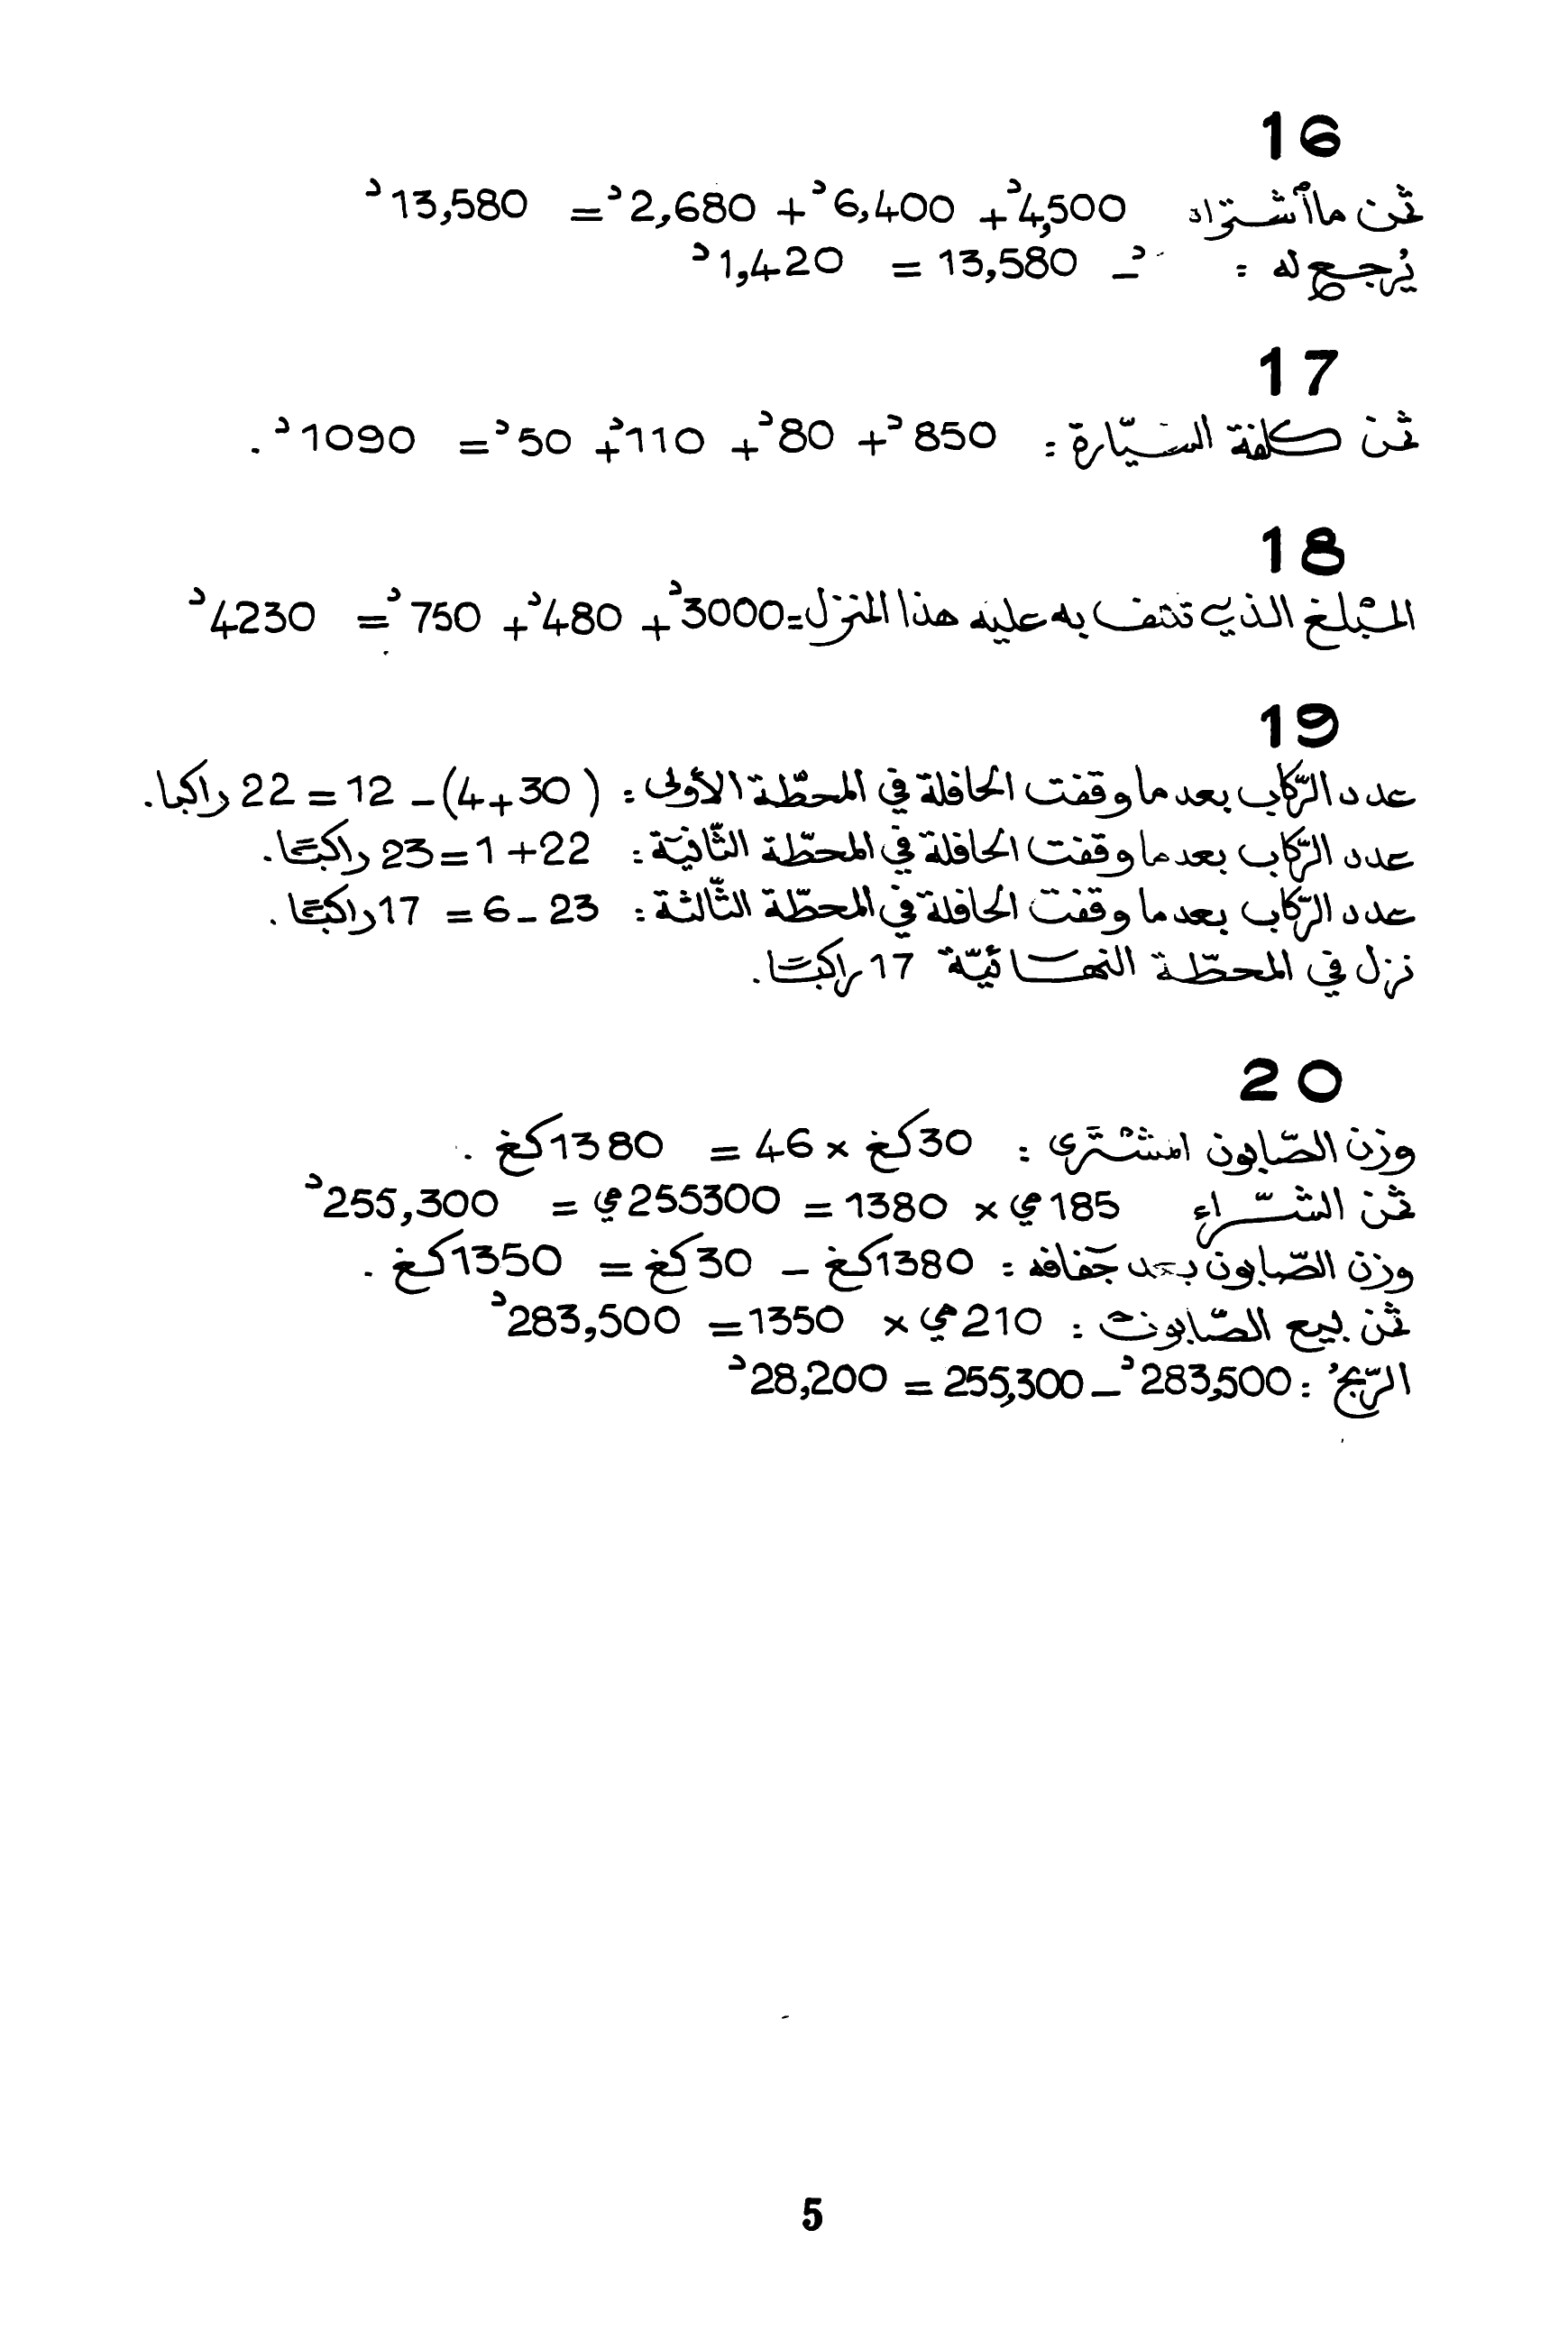 16
ثمن ما أشتراه 4,500د + 6,400د + 2,680د = 13,580د
يرجع له : د - 13,580 = 1,420د
17
ثمن كلفة السيّارة : 850د + 80د + 110د + 50د = 1090د .
18
المبلغ الذي تقف به عليه هذا المنزل = 3000د + 480د + 750د = 4230د
19
عدد الرّكاب بعد ما وقفت الحافلة في المحطّة الأولى : (30+4) - 12 = 22 راكبا.
عدد الرّكاب بعد ما وقفت الحافلة في المحطّة الثّانية : 22+1=23 راكبًا.
عدد الرّكاب بعد ما وقفت الحافلة في المحطّة الثّالثة : 23 - 6 = 17 راكبًا.
نزل في المحطّة النهائيّة 17 راكبًا.
20
وزن الصّابون المشترى : 30كغ × 46 = 1380كغ .
ثمن الشّراء 185مي × 1380 = 255300مي = 255,300د
وزن الصّابون بعد جفافه : 1380كغ - 30كغ = 1350كغ .
ثمن بيع الصّابون : 210مي × 1350 = 283,500د
الرّبح : 283,500د - 255,300 = 28,200د
5